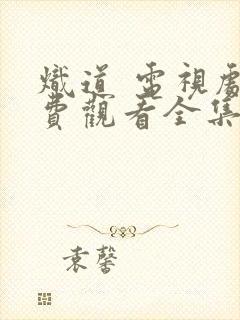 熾道 電視劇
費觀看全集
袁馨